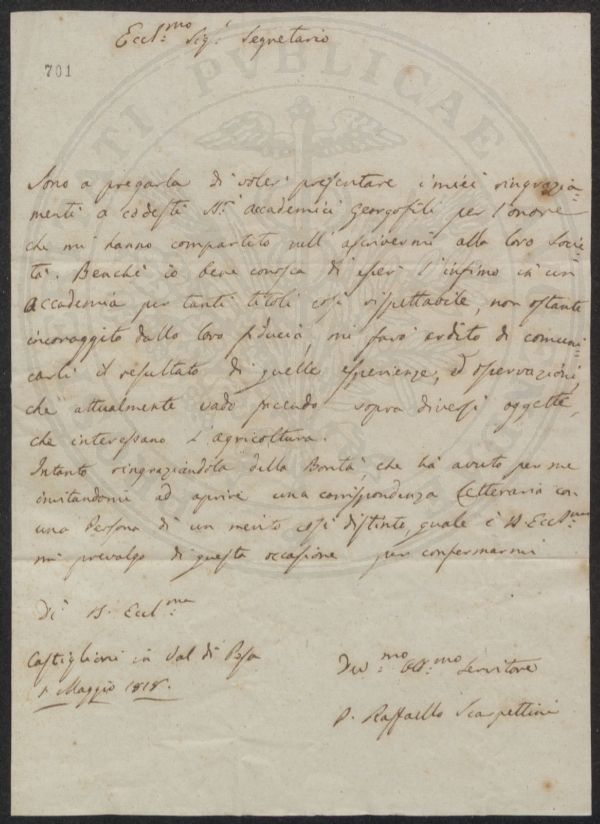 Eccl.mo Sig.r Segretario
701
Sono a pregarla di voler presentare i miei ringrazia=
menti a codesti Sig.ri accademici Georgofili per l'onore
che mi hanno compartito nell'ascrivermi alla loro Socie=
tà. Benchè io bene conosca di esser l'infimo in un
accademia per tanti titoli così rispettabile, non ostante
incoraggito dalla loro fiducia, mi farò ardito di comuni=
carli il resultato di quelle esperienze, ed osservazioni,
che attualmente vado facendo sopra diversi oggetti,
che interessano l'agricoltura.
Intanto ringraziandola della Bontà, che hà avuto per me
invitandomi ad aprire una corrispondenza Letteraria con
una Persona di un merito così distinto, quale è V. Eccl.ma
mi prevalgo di questa occasione per confermarmi
Di V. Eccl.ma
Castiglioni in Val di Pesa
1 Maggio 1818.
Dev.mo Obb.mo Servitore
P. Raffaello Scarpettini